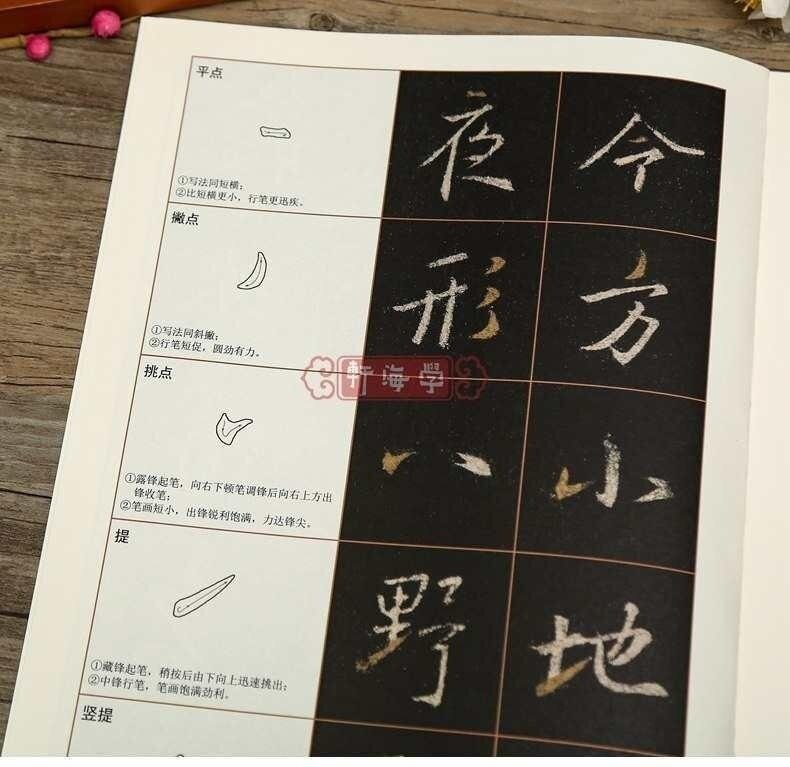 平点
①写法同短横；
②比短横更小，行笔更迅疾。
夜 今
撇点
①写法同斜撇；
②行笔短促，圆劲有力。
形 方
軒海学
挑点
①露锋起笔，向右下顿笔调锋后向右上方出
锋收笔；
②笔画短小，出锋锐利饱满，力达锋尖。
小
提
①藏锋起笔，稍按后由下向上迅速挑出；
②中锋行笔，笔画饱满劲利。
野 地
竖提